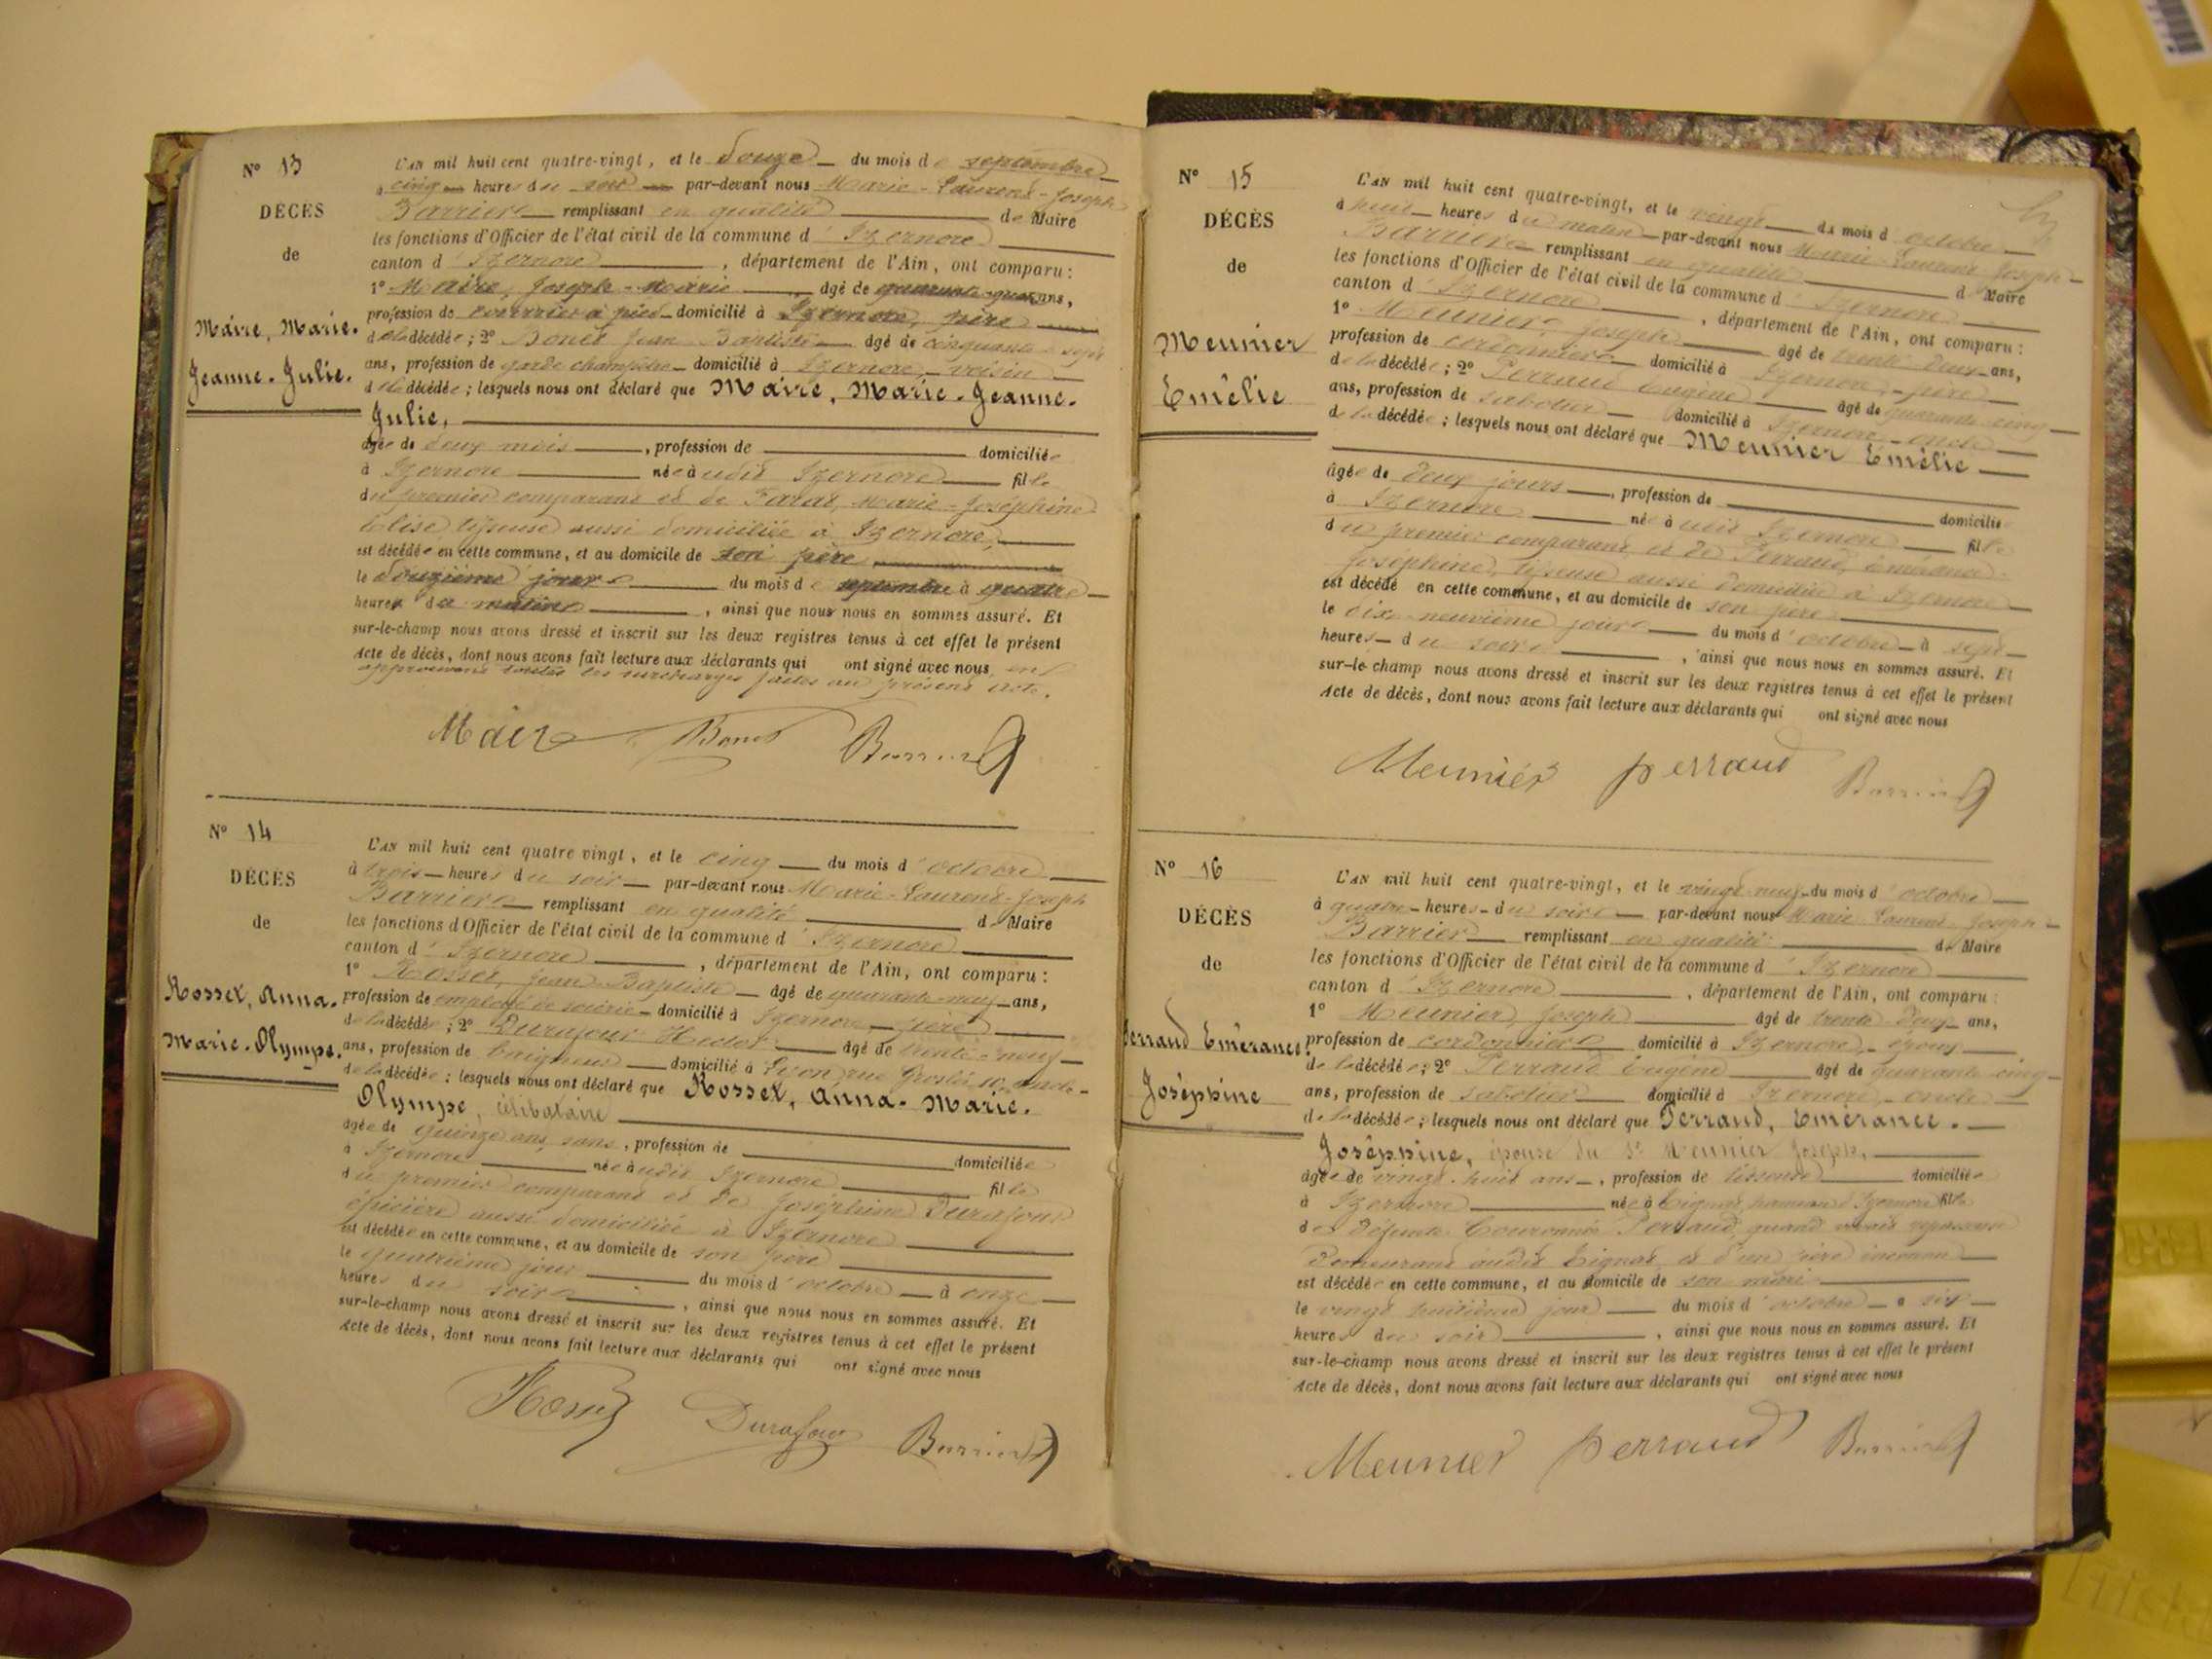 N° 13
DÉCÈS
de
Maire, Marie-
Jeanne-Julie.
L'AN mil huit cent quatre-vingt, et le douze du mois de septembre
à cinq heures du soir par-devant nous Marie-Laurent-Joseph
Barrier remplissant en qualité de Maire
les fonctions d'Officier de l'état civil de la commune d'Izernore
canton d'Izernore, département de l'Ain, ont comparu :
1° Maire, Joseph-Marie âgé de quarante ans,
profession de courrier à pied domicilié à Izernore, père
de la décédée ; 2° Bonet Jean Baptiste âgé de cinquante-sept
ans, profession de garde champêtre domicilié à Izernore, voisin
de la décédée ; lesquels nous ont déclaré que Maire, Marie-Jeanne-
Julie,
âgée de deux mois, profession de domiciliée
à Izernore née à udit Izernore fille
du premier comparant et de Marie-Joséphine
Élise, tisseuse aussi domiciliée à Izernore,
est décédée en cette commune, et au domicile de son père
le douzième jour du mois de septembre à quatre
heures du matin, ainsi que nous nous en sommes assuré. Et
sur-le-champ nous avons dressé et inscrit sur les deux registres tenus à cet effet le présent
Acte de décès, dont nous avons fait lecture aux déclarants qui ont signé avec nous, en
approuvant toutes les surcharges faites au présent acte.
Maire Bonet Barrier
N° 14
DÉCÈS
de
Rosset, Anna-
Marie-Olympe.
L'AN mil huit cent quatre vingt, et le cinq du mois d'octobre
à trois heures du soir par-devant nous Marie-Laurent-Joseph
Barrier remplissant en qualité de Maire
les fonctions d'Officier de l'état civil de la commune d'Izernore
canton d'Izernore, département de l'Ain, ont comparu :
1° Rosset, Jean Baptiste âgé de quarante-neuf ans,
profession de employé de soierie domicilié à Izernore, père
de la décédée ; 2° Durafour Hector âgé de trente-neuf
ans, profession de domicilié à Lyon, rue Grolée, 10, oncle
de la décédée ; lesquels nous ont déclaré que Rosset, Anna-Marie-
Olympe, célibataire
âgée de quinze ans, sans, profession de domiciliée
à Izernore née à udit Izernore fille
du premier comparant et de Joséphine Durafour
épicière aussi domiciliée à Izernore
est décédée en cette commune, et au domicile de son père
le quatrième jour du mois d'octobre à onze
heures du soir, ainsi que nous nous en sommes assuré. Et
sur-le-champ nous avons dressé et inscrit sur les deux registres tenus à cet effet le présent
Acte de décès, dont nous avons fait lecture aux déclarants qui ont signé avec nous
Rosset Durafour Barrier
N° 15
DÉCÈS
de
Meunier
Emélie
L'AN mil huit cent quatre-vingt, et le vingt du mois d'octobre
à huit heures du matin par-devant nous Marie Laurent Joseph
Barrier remplissant en qualité de Maire
les fonctions d'Officier de l'état civil de la commune d'Izernore
canton d'Izernore, département de l'Ain, ont comparu :
1° Meunier Joseph âgé de trente deux ans,
profession de cordonnier domicilié à Izernore, père
de la décédée ; 2° Perraud Eugène âgé de quarante cinq
ans, profession de sabotier domicilié à Izernore, oncle
de la décédée ; lesquels nous ont déclaré que Meunier Emélie
âgée de deux jours, profession de domicilié
à Izernore née à udit Izernore fille
du premier comparant et de Perraud, Émérance
Joséphine, tisseuse aussi domiciliée à Izernore
est décédé en cette commune, et au domicile de son père
le dix neuvième jour du mois d'octobre à sept
heures du soir, ainsi que nous nous en sommes assuré. Et
sur-le-champ nous avons dressé et inscrit sur les deux registres tenus à cet effet le présent
Acte de décès, dont nous avons fait lecture aux déclarants qui ont signé avec nous
Meunier perraud Barrier
N° 16
DÉCÈS
de
Perraud Emérance
Joséphine
L'AN mil huit cent quatre-vingt, et le vingt-neuf du mois d'octobre
à quatre heures du soir par-devant nous Marie Laurent Joseph
Barrier remplissant en qualité de Maire
les fonctions d'Officier de l'état civil de la commune d'Izernore
canton d'Izernore, département de l'Ain, ont comparu :
1° Meunier, Joseph âgé de trente deux ans,
profession de cordonnier domicilié à Izernore, époux
de la décédée ; 2° Perraud Eugène âgé de quarante cinq
ans, profession de sabotier domicilié à Izernore, oncle
de la décédée ; lesquels nous ont déclaré que Perraud, Emérance-
Joséphine, épouse du Sr Meunier Joseph,
âgée de vingt-huit ans, profession de tisseuse domiciliée
à Izernore née à Tignat hameau d'Izernore fille
de défunte Couronnée Perraud, quand vivait repasseuse
demeurant audit Tignat, et d'un père inconnu
est décédée en cette commune, et au domicile de son mari
le vingt huitième jour du mois d'octobre à six
heures du soir, ainsi que nous nous en sommes assuré. Et
sur-le-champ nous avons dressé et inscrit sur les deux registres tenus à cet effet le présent
Acte de décès, dont nous avons fait lecture aux déclarants qui ont signé avec nous
Meunier perraud Barrier